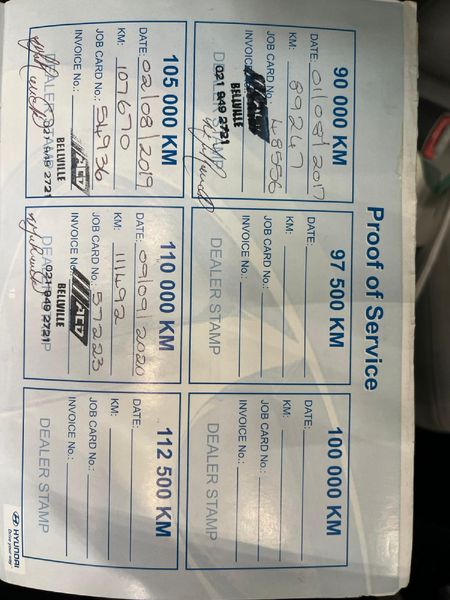 Proof of Service
90 000 KM
DATE: 01/08/2017
KM: 89247
JOB CARD No.: 48556
INVOICE No.:
DEALER STAMP
BELLVILLE
021 949 2721
97 500 KM
DATE:
KM:
JOB CARD No.:
INVOICE No.:
DEALER STAMP
100 000 KM
DATE:
KM:
JOB CARD No.:
INVOICE No.:
DEALER STAMP
105 000 KM
DATE: 02/08/2019
KM: 107670
JOB CARD No.: 54936
INVOICE No.:
DEALER STAMP
BELLVILLE
021 949 2721
110 000 KM
DATE: 09/09/2020
KM: 111492
JOB CARD No.: 57223
INVOICE No.:
DEALER STAMP
BELLVILLE
021 949 2721
112 500 KM
DATE:
KM:
JOB CARD No.:
INVOICE No.:
DEALER STAMP
HYUNDAI
Drive your way